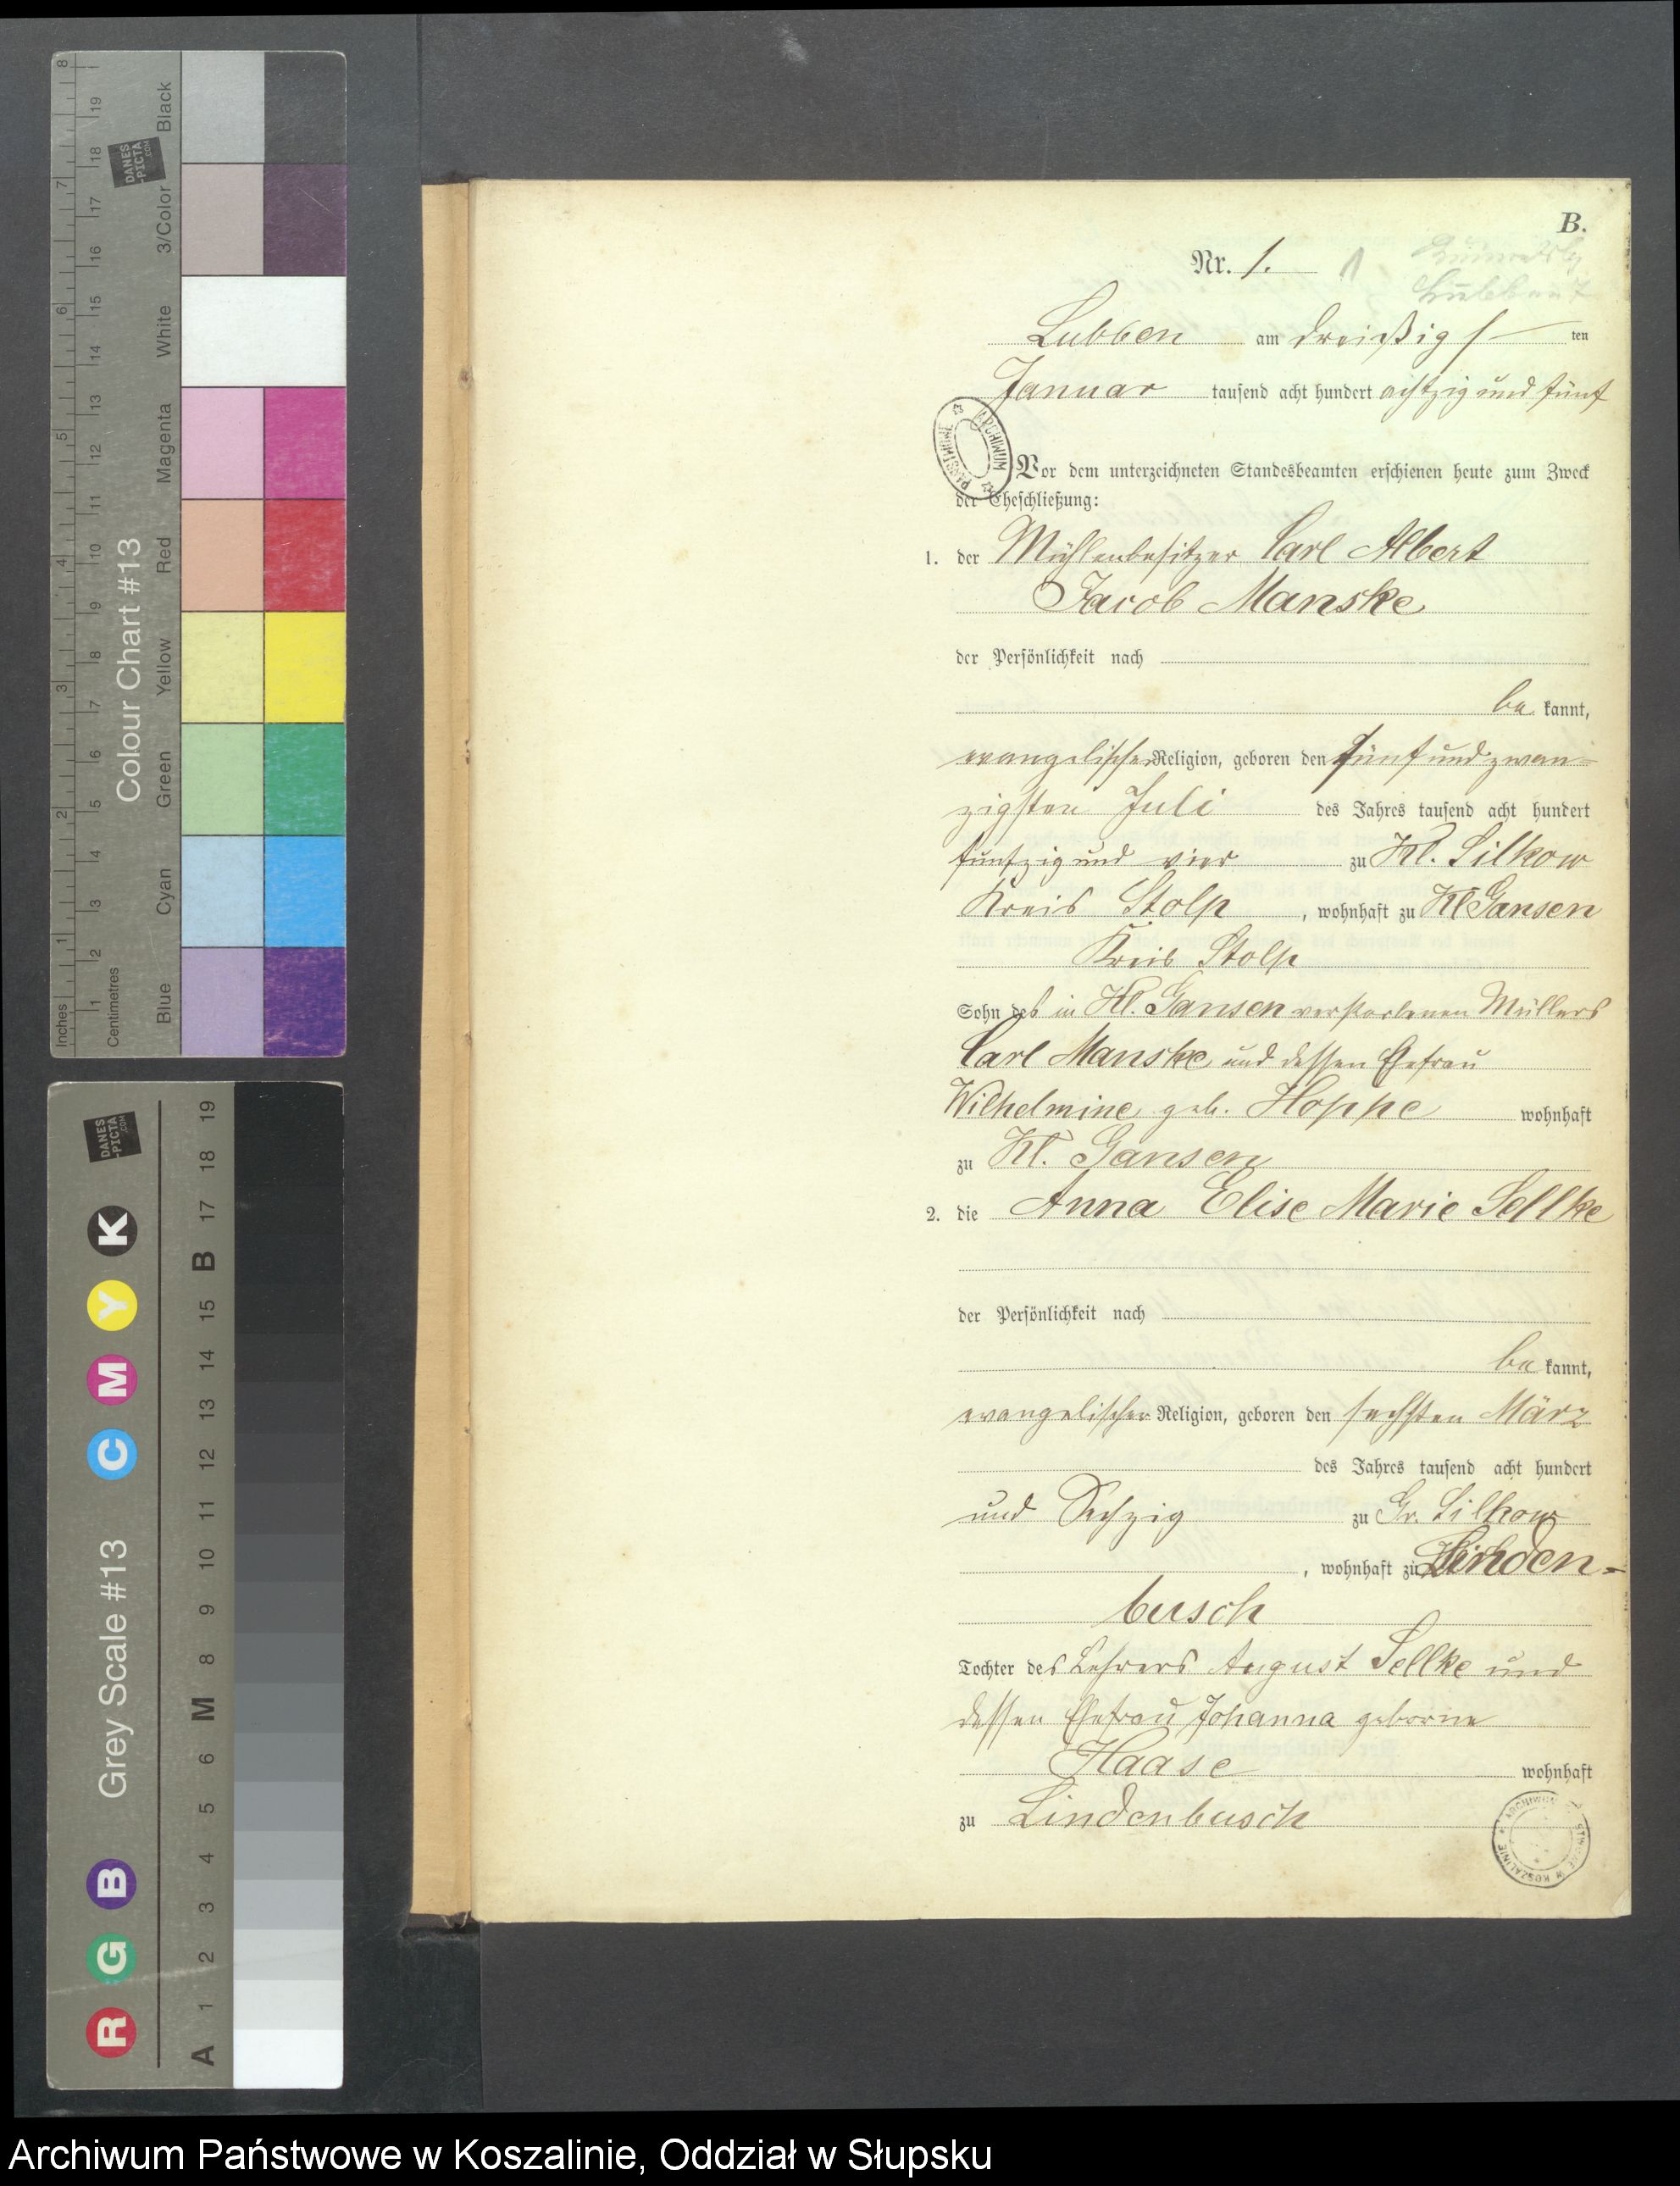 B.
Nr. 1. 1
Lubben am dreißigs ten
Januar tausend acht hundert achtzig und fünf
Vor dem unterzeichneten Standesbeamten erschienen heute zum Zweck
der Eheschließung:
1. der Mühlenbesitzer Carl Albert
Jacob Manske
der Persönlichkeit nach
be kannt,
evangelischer Religion, geboren den fünf und zwan-
zigsten Juli des Jahres tausend acht hundert
funfzig und vier zu Kl. Silkow
Kreis Stolp, wohnhaft zu Kl Gansen
Kreis Stolp
Sohn des in Kl. Gansen verstorbenen Müllers
Carl Manske und dessen Ehefrau
Wilhelmine geb. Hoppe wohnhaft
zu Kl. Gansen
2. die Anna Elise Marie Sellke
der Persönlichkeit nach
be kannt,
evangelischer Religion, geboren den sechsten März
des Jahres tausend acht hundert
und Sechzig zu Gr. Silkow
, wohnhaft zu Linden-
busch
Tochter des Lehrers August Sellke und
dessen Ehefrau Johanna geborne
Haase wohnhaft
zu Lindenbusch
ARCHIWUM PAŃSTWOWE
Inches 1 2 3 4 5 6 7 8
Centimetres 1 2 3 4 5 6 7 8 9 10 11 12 13 14 15 16 17 18 19
Colour Chart #13
Blue Cyan Green Yellow Red Magenta White 3/Color Black
DANES
-PICTA
.COM
Grey Scale #13
R G B C M Y K
A 1 2 3 4 5 6 M 8 9 10 11 12 13 14 15 B 17 18 19
DANES
-PICTA
.COM
Archiwum Państwowe w Koszalinie, Oddział w Słupsku